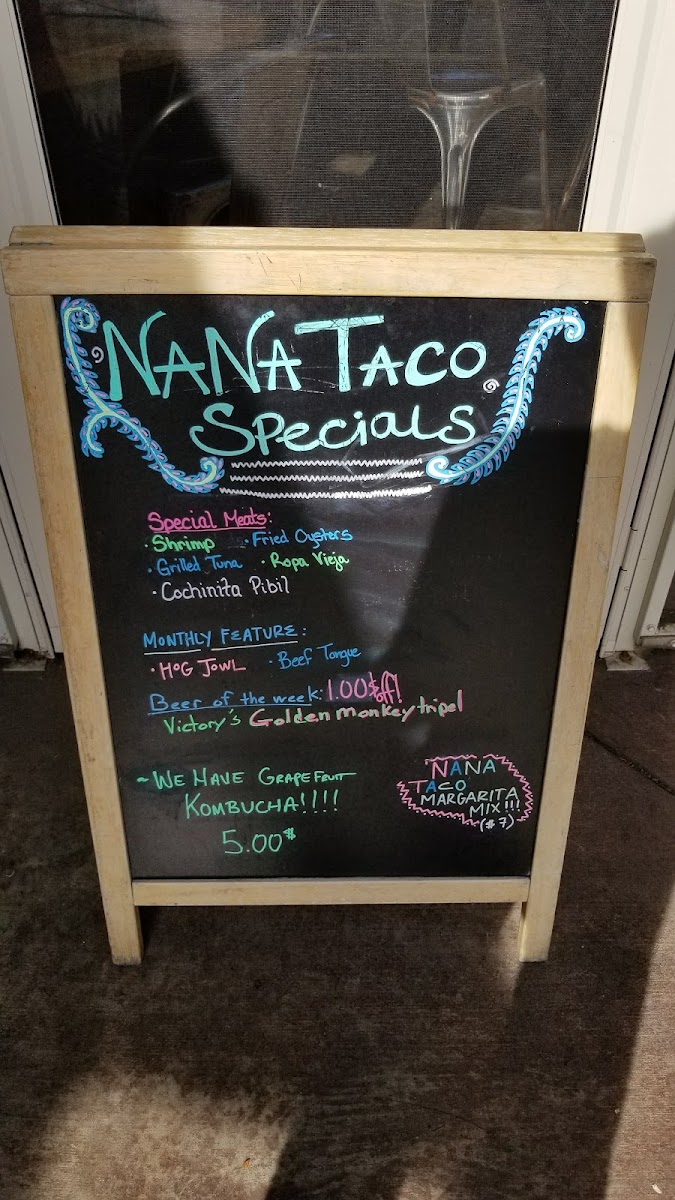 NANA TACO
SPecials
Special Meats:
· Shrimp · Fried Oysters
· Grilled Tuna · Ropa Vieja
· Cochinita Pibil
MONTHLY FEATURE:
· HOG JOWL · Beef Tongue
Beer of the week: 1.00$ off!
Victory's Golden monkey tripel
~ WE HAVE GRAPEFRUIT
KOMBUCHA!!!!
5.00$
NANA
TACO
MARGARITA
MIX!!!
($7)